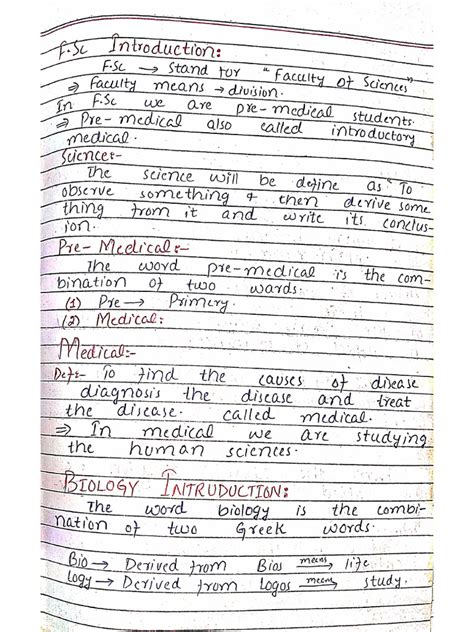 F.Sc Introduction:
F.Sc → Stand for "Faculty of Sciences"
⇒ Faculty means → division.
In F.Sc we are pre-medical students.
⇒ Pre-medical also called introductory
medical.
Science:-
The science will be define as "To
observe something & then derive some
thing from it and write its conclus-
ion.
Pre-Medical:-
The word pre-medical is the com-
bination of two words.
(1) Pre → Primery.
(2) Medical:
Medical:-
Def:- To find the causes of disease
diagnosis the disease and treat
the disease. called medical.
⇒ In medical we are studying
the human sciences.
BIOLOGY INTRUDUCTION:
The word biology is the combi-
nation of two Greek words.
Bio → Derived from Bios means→ life
logy → Derived from logos means→ study.